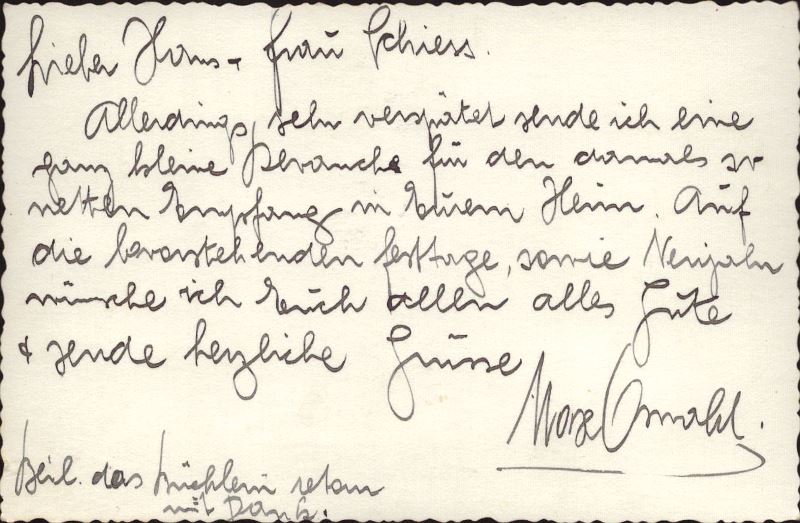 Lieber Hans + Frau Schiess.
Allerdings, sehr verspätet sende ich eine
ganz kleine Revanche für den damals so
netten Empfang in Eurem Heim. Auf
die bevorstehenden Festtage, sowie Neujahr
wünsche ich Euch allen alles Gute
+ sende herzliche Grüsse
Oswald.
Beil. das Büchlein retour
mit Dank.